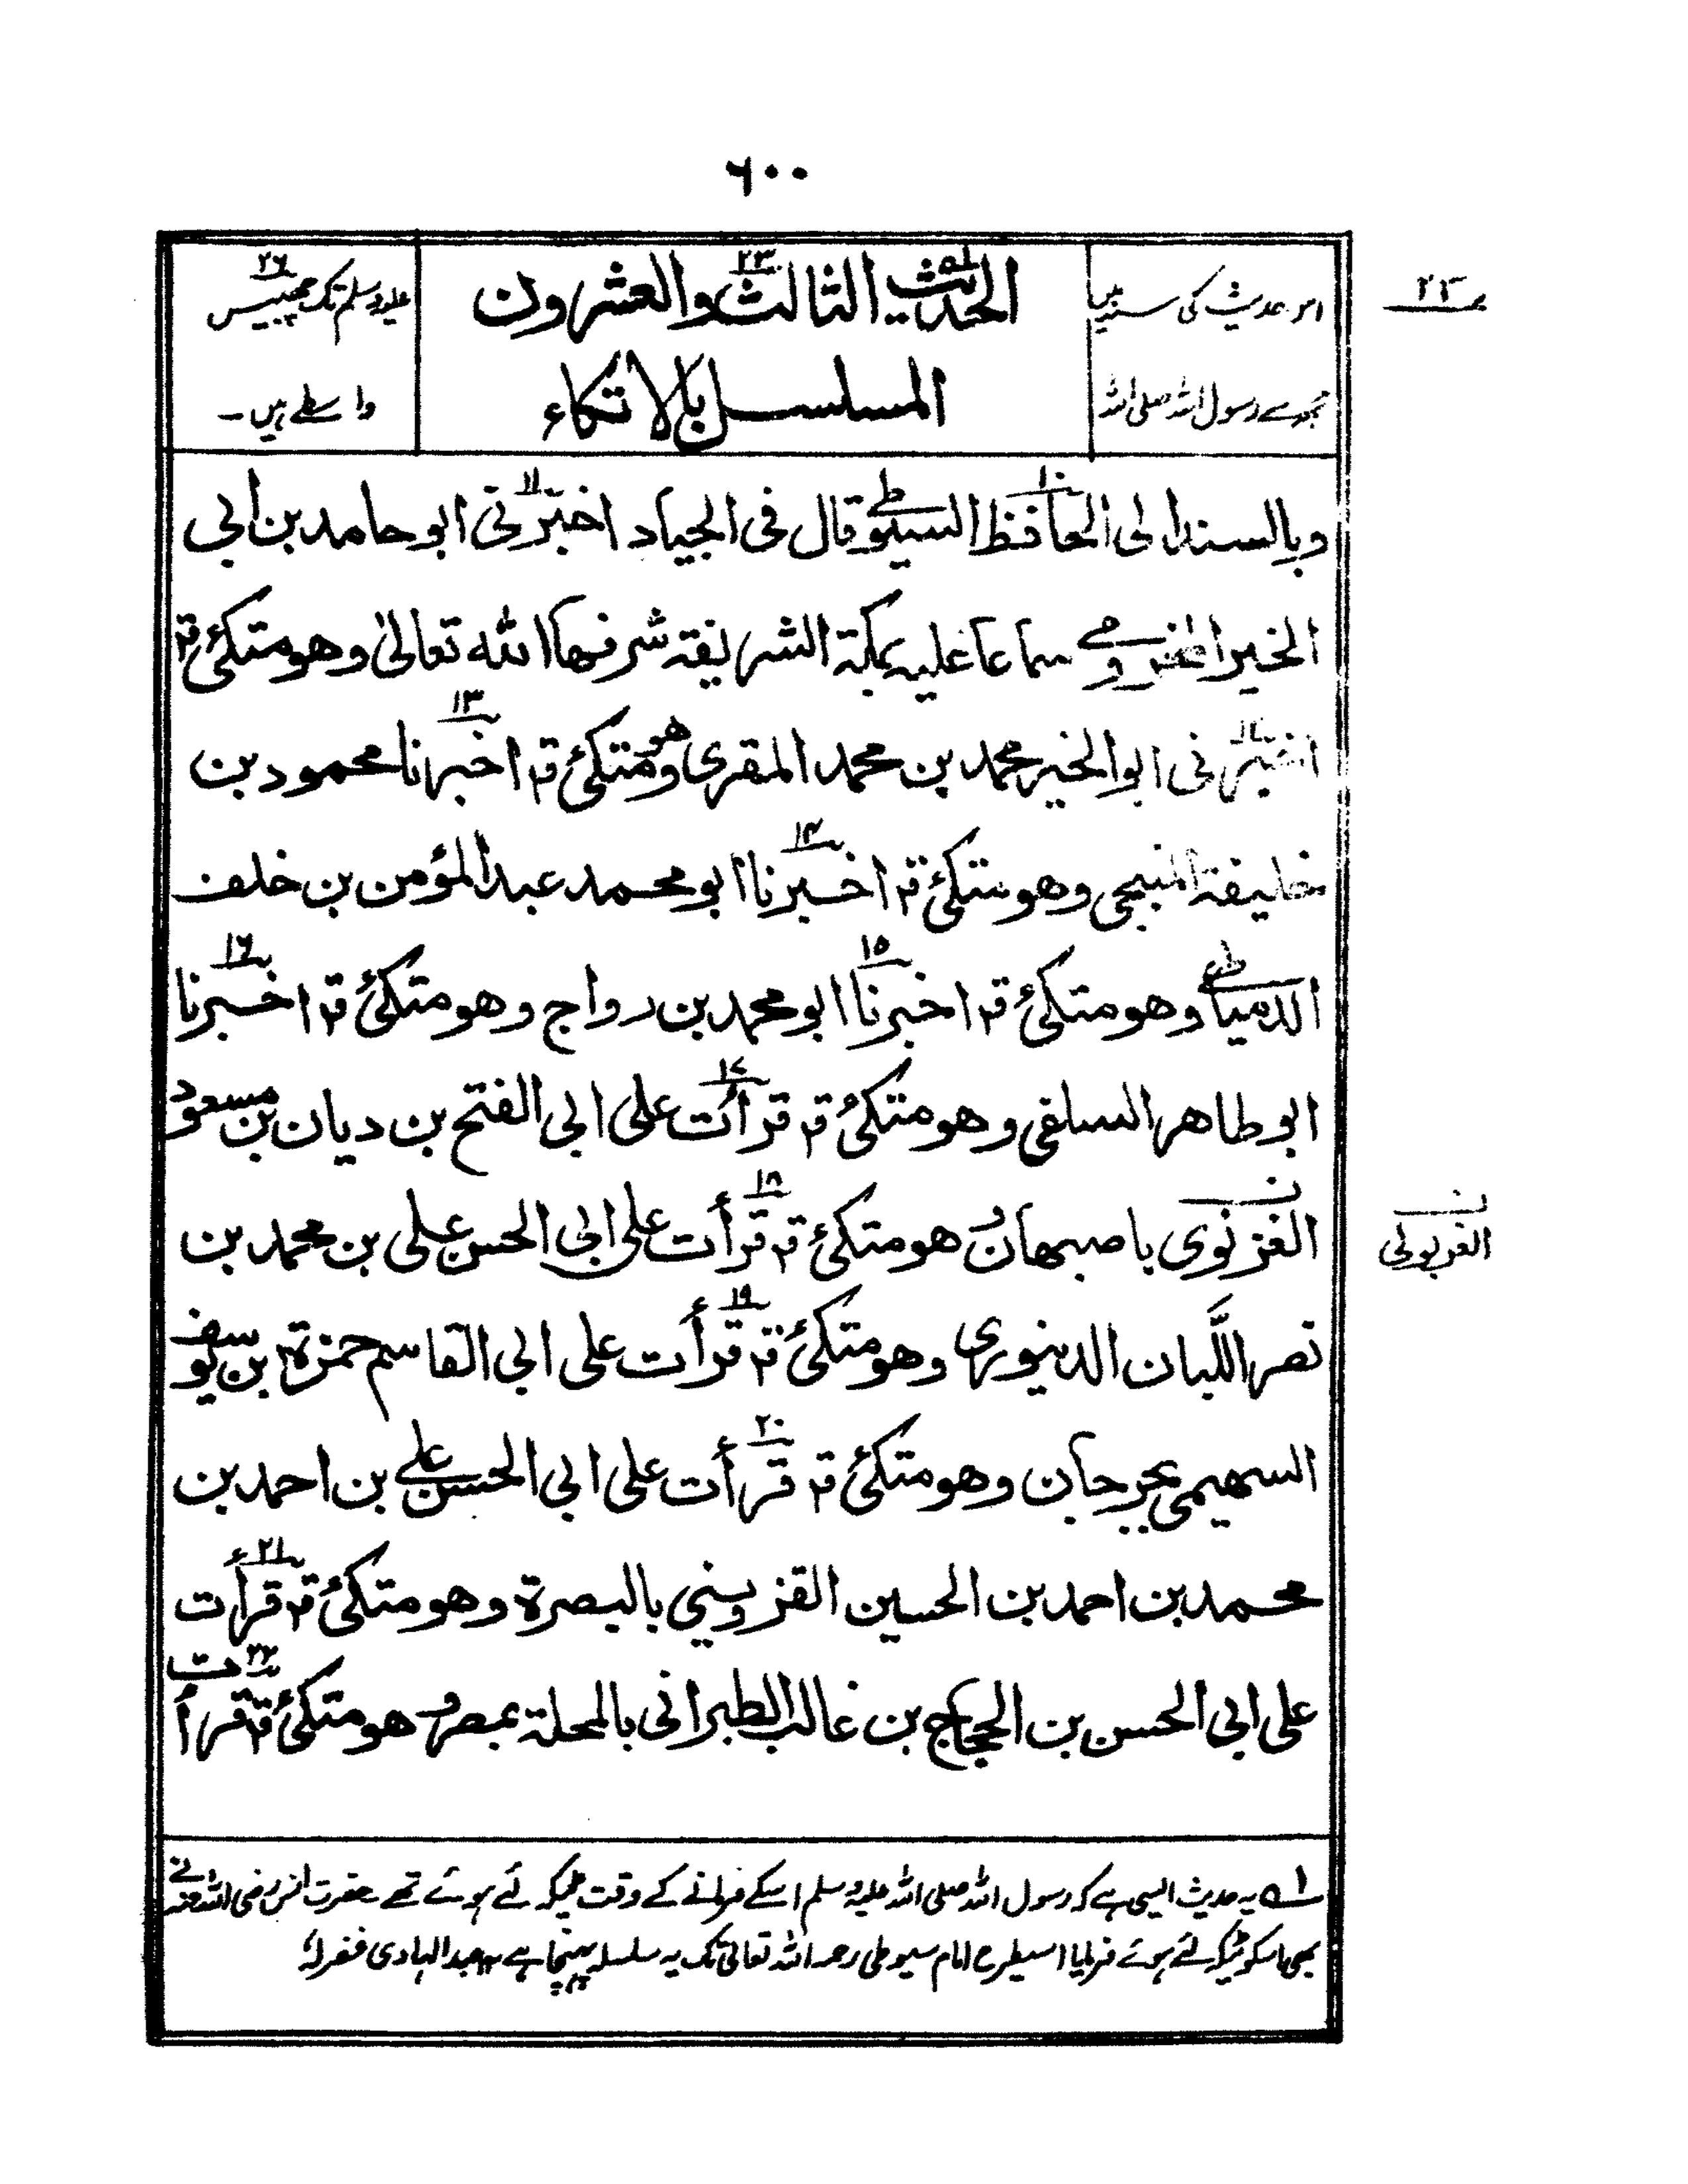 ٦٠٠
اس حدیث کی سند میں
مجھ سے رسول اللہ صلی اللہ
الحدیث الثالث والعشرون
المسلسل بالاتکاء
علیہ وسلم تک چھبیس ٢٦
واسطے ہیں۔
٢٣
وبالسند الی الحافظ السیوطی قال فی الجیاد اخبرنی ابو حامد بن ابی
الخیر المخزومی سماعا علیہ بمکۃ الشریفۃ شرفھا اللہ تعالیٰ وھو متکئ قال
اخبرنی ابوالخیر محمد بن محمد المقری وھو متکئ قال اخبرنا محمود بن
خلیفۃ المنبجی وھو متکئ قال اخبرنا ابو محمد عبد المؤمن بن خلف
الدمیاطی وھو متکئ قال اخبرنا ابو محمد بن رواج وھو متکئ قال اخبرنا
ابو طاھر السلفی وھو متکئ قال قرأت علی ابی الفتح بن دیان بن مسعود
الغزنوی باصبھان وھو متکئ قال قرأت علی ابی الحسن علی بن محمد بن
نصر اللَّبان الدینوری وھو متکئ قال قرأت علی ابی القاسم حمزۃ بن یوسف
السھیمی بجرجان وھو متکئ قال قرأت علی ابی الحسن علی بن احمد بن
محمد بن احمد بن الحسین القزوینی بالبصرۃ وھو متکئ قال قرأت
علی ابی الحسن بن الحجاج بن غالب الطبرانی بالمحلۃ بمصر وھو متکئ قال قرأت
ن
الغربولی
١ھ یہ حدیث ایسی ہے کہ رسول اللہ صلی اللہ علیہ وسلم اسکے فرمانے کے وقت ٹیک لئے ہوئے تھے حضرت انس رضی اللہ عنہ نے
بھی اسکو ٹیک لئے ہوئے فرمایا اسیطرح امام سیوطی رحمہ اللہ تعالیٰ تک یہ سلسلہ پہنچا ہے ١٢ عبدالہادی غفرلہ